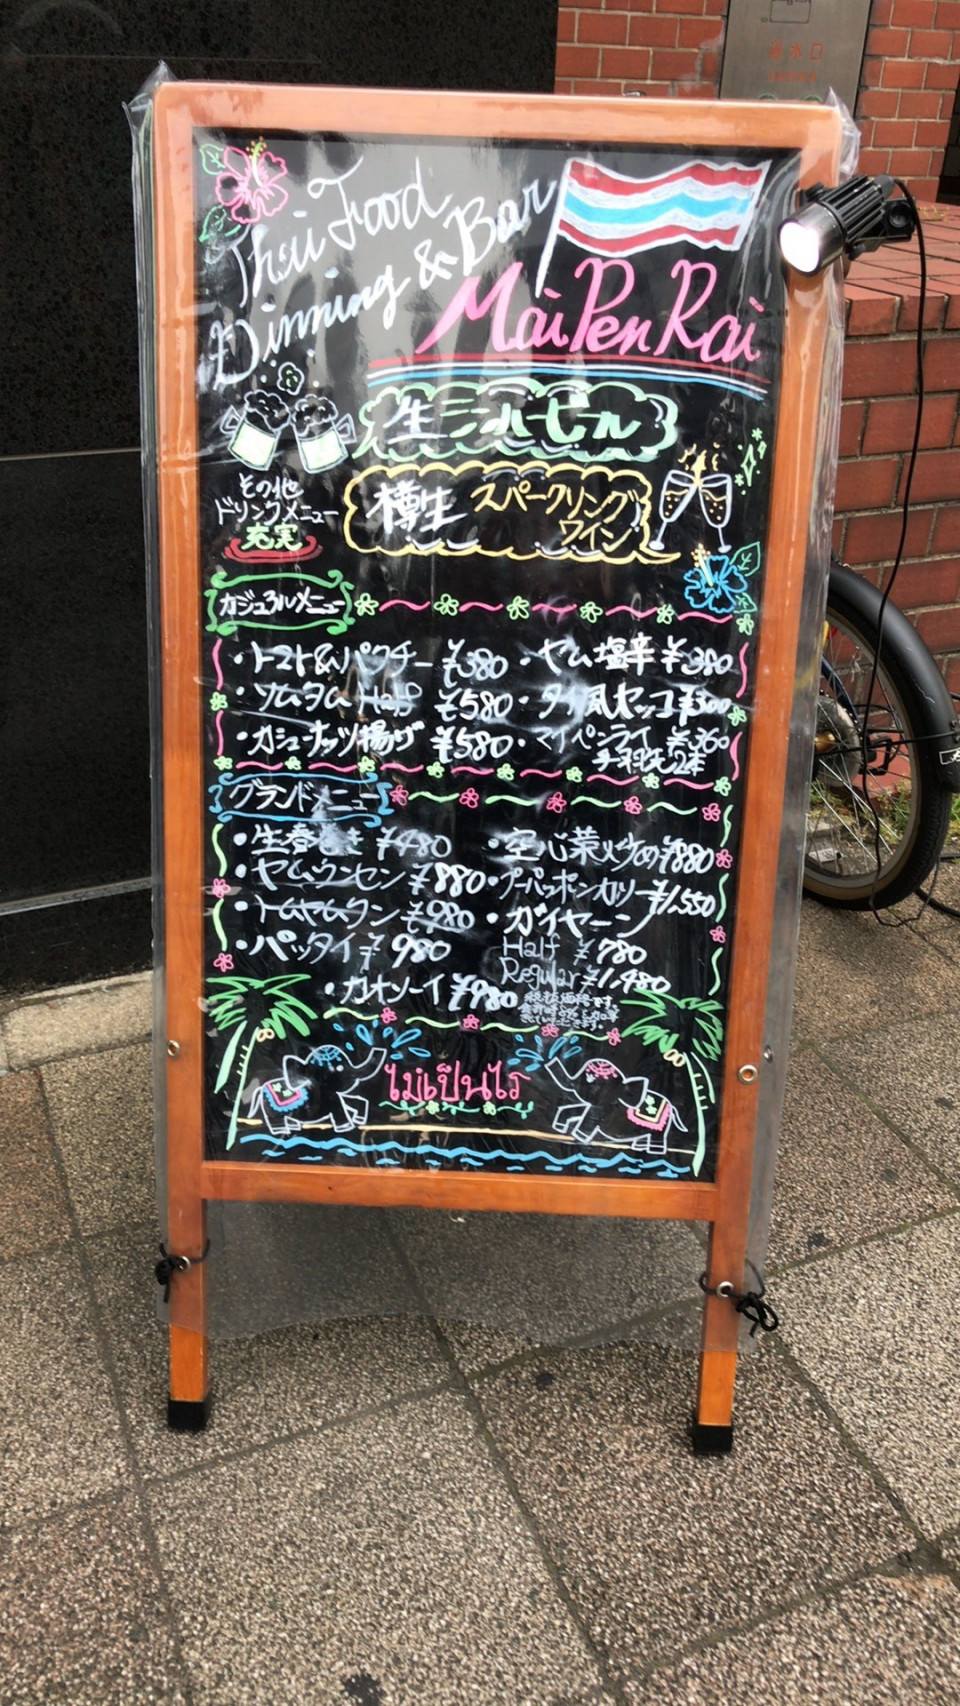 Thai Food
Dinning & Bar
Mai Pen Rai
生ビール
樽生 スパークリング
ワイン
その他
ドリンクメニュー
充実
カジュアルメニュー
・トマト&パクチー ¥380
・ソムタム Half ¥580
・カシューナッツ揚げ ¥580
・ヤム塩辛 ¥380
・タイ風セッコ ¥300
・マイペンライ ¥360
手羽先2本
グランドメニュー
・生春巻き ¥480
・ヤムウンセン ¥880
・トムヤムクン ¥980
・パッタイ ¥980
・カオソーイ ¥980
・空心菜炒め ¥880
・プーパッポンカリー ¥1,550
・ガイヤーン
Half ¥780
Regular ¥1,480
税抜価格です。
ไม่เป็นไร
送水口